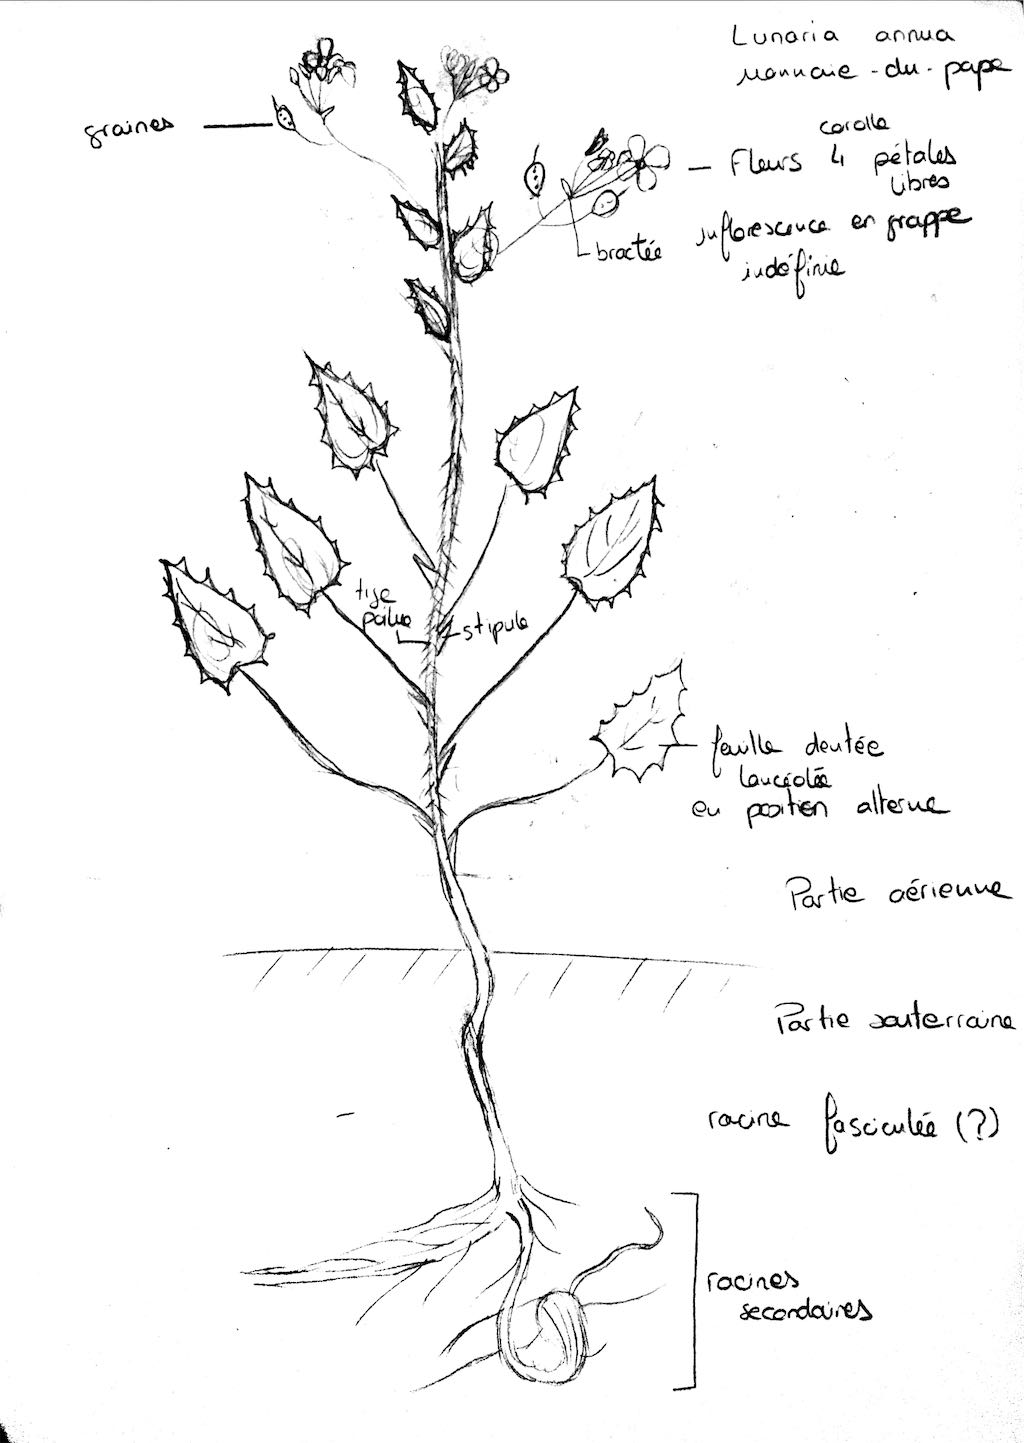 Lunaria annua
Monnaie-du-pape
graines
corolle
Fleurs 4 pétales
libres
inflorescence en grappe
indéfinie
bractée
tige
poilue
stipule
feuille dentée
lancéolée
en position alterne
Partie aérienne
Partie souterraine
racine fasciculée (?)
racines
secondaires